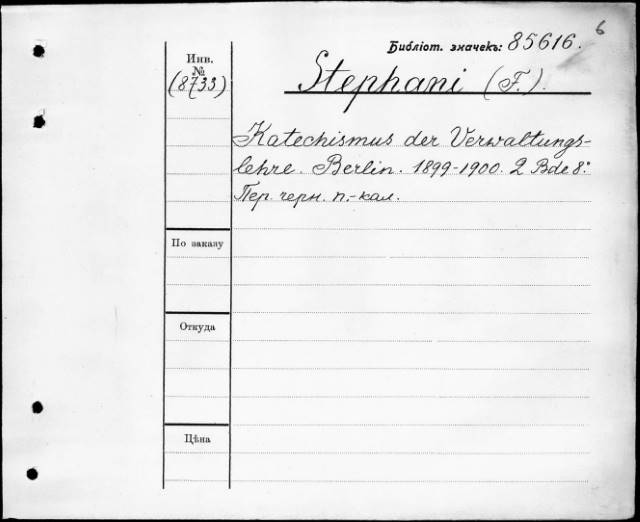 6
Библіот. значекъ: 85616.
Инв.
№
(8733)
Stephani (F.).
Katechismus der Verwaltungs-
lehre. Berlin. 1899-1900. 2 Bde 8º
Пер. черн. п.-кал.
По заказу
Откуда
Цѣна